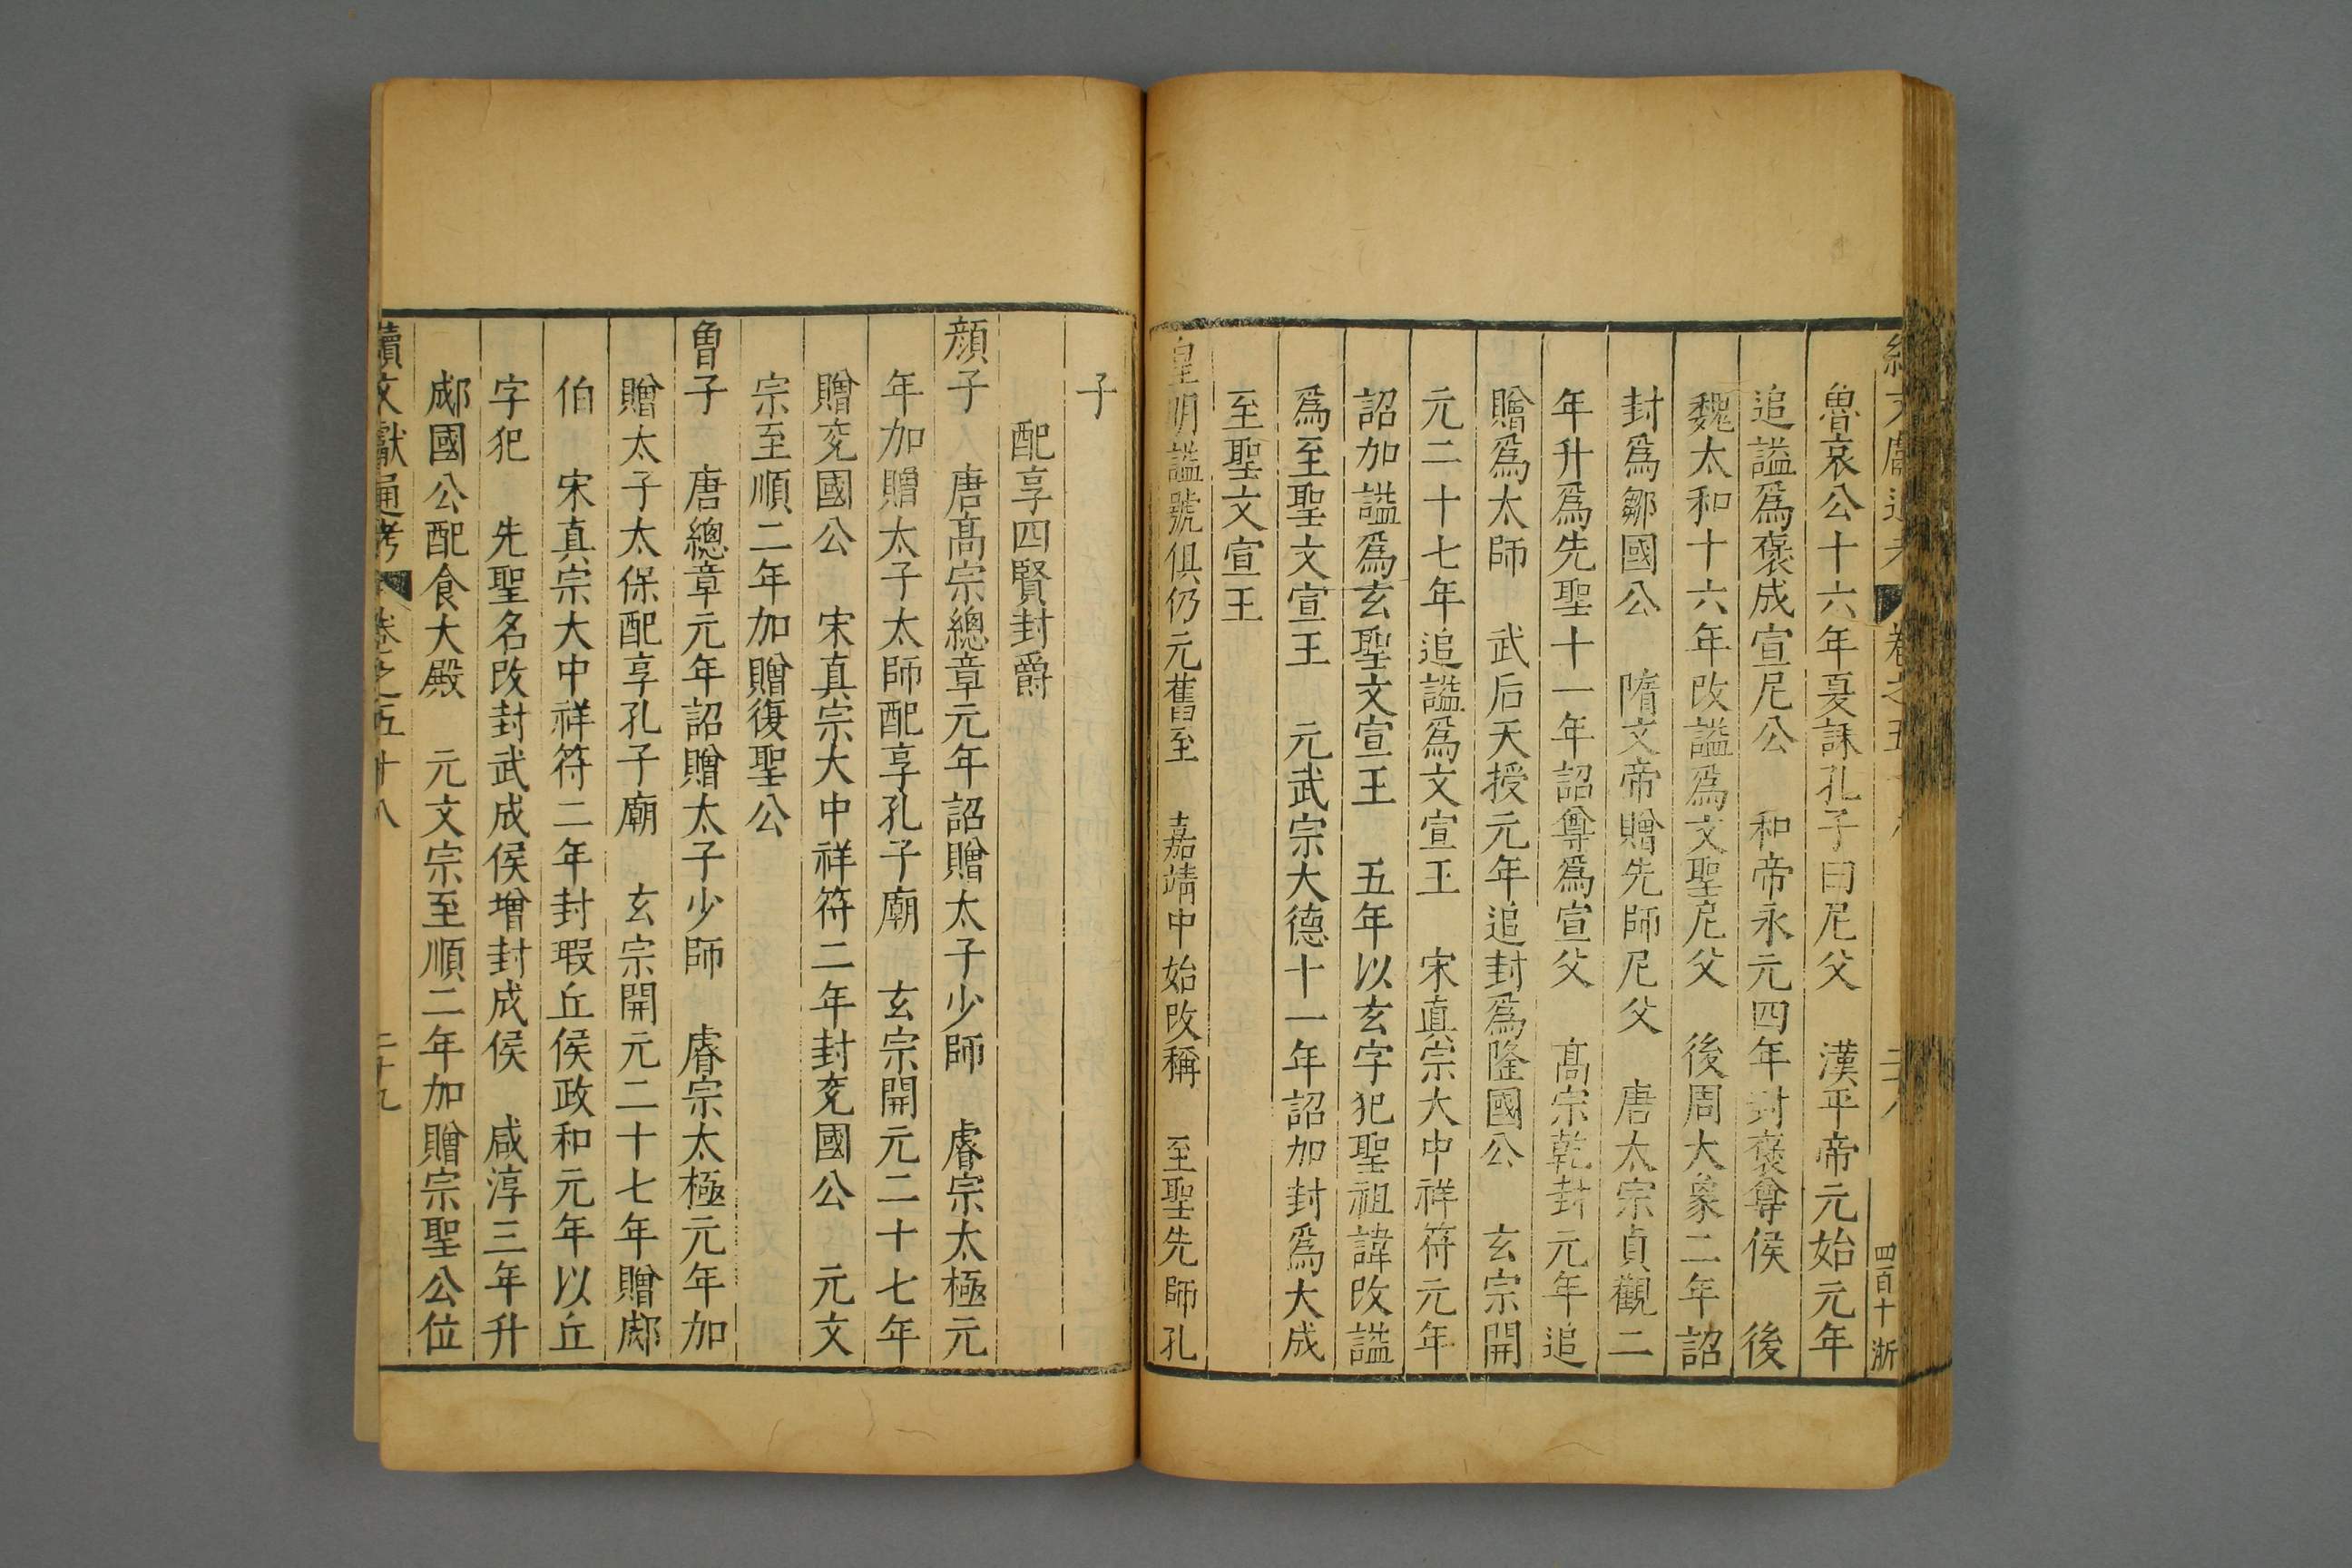 續文獻通考 卷之五十八 二十八 四百十 浙
魯哀公十六年夏誄孔子曰尼父 漢平帝元始元年
追謚爲褒成宣尼公 和帝永元四年封褒尊侯 後
魏太和十六年改謚爲文聖尼父 後周大象二年詔
封爲鄒國公 隋文帝贈先師尼父 唐太宗貞觀二
年升爲先聖十一年詔尊爲宣父 髙宗乾封元年追
贈爲太師 武后天授元年追封爲隆國公 玄宗開
元二十七年追謚爲文宣王 宋真宗大中祥符元年
詔加謚爲玄聖文宣王 五年以玄字犯聖祖諱改謚
爲至聖文宣王 元武宗大德十一年詔加封爲大成
至聖文宣王
皇明謚號俱仍元舊至 嘉靖中始改稱 至聖先師孔
子
配享四賢封爵
顔子 唐髙宗總章元年詔贈太子少師 睿宗太極元
年加贈太子太師配享孔子廟 玄宗開元二十七年
贈兖國公 宋真宗大中祥符二年封兖國公 元文
宗至順二年加贈復聖公
曽子 唐總章元年詔贈太子少師 睿宗太極元年加
贈太子太保配享孔子廟 玄宗開元二十七年贈郕
伯 宋真宗大中祥符二年封瑕丘侯政和元年以丘
字犯 先聖名改封武成侯增封成侯 咸淳三年升
郕國公配食大殿 元文宗至順二年加贈宗聖公位
續文獻通考 卷之五十八 二十九